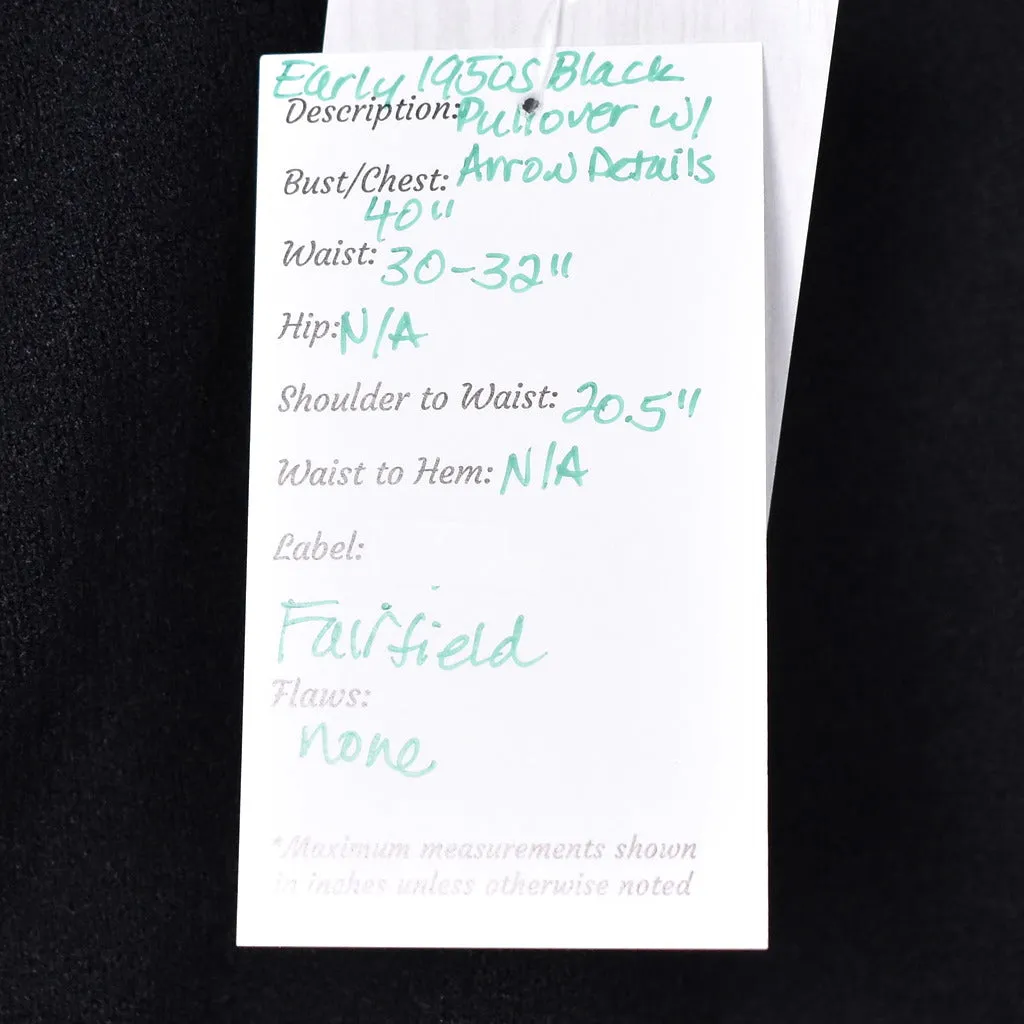 Early 1950s Black
Description: Pullover w/
Bust/Chest: Arrow Details
40"
Waist: 30-32"
Hip: N/A
Shoulder to Waist: 20.5"
Waist to Hem: N/A
Label:
Fairfield
Flaws:
none
*Maximum measurements shown
in inches unless otherwise noted